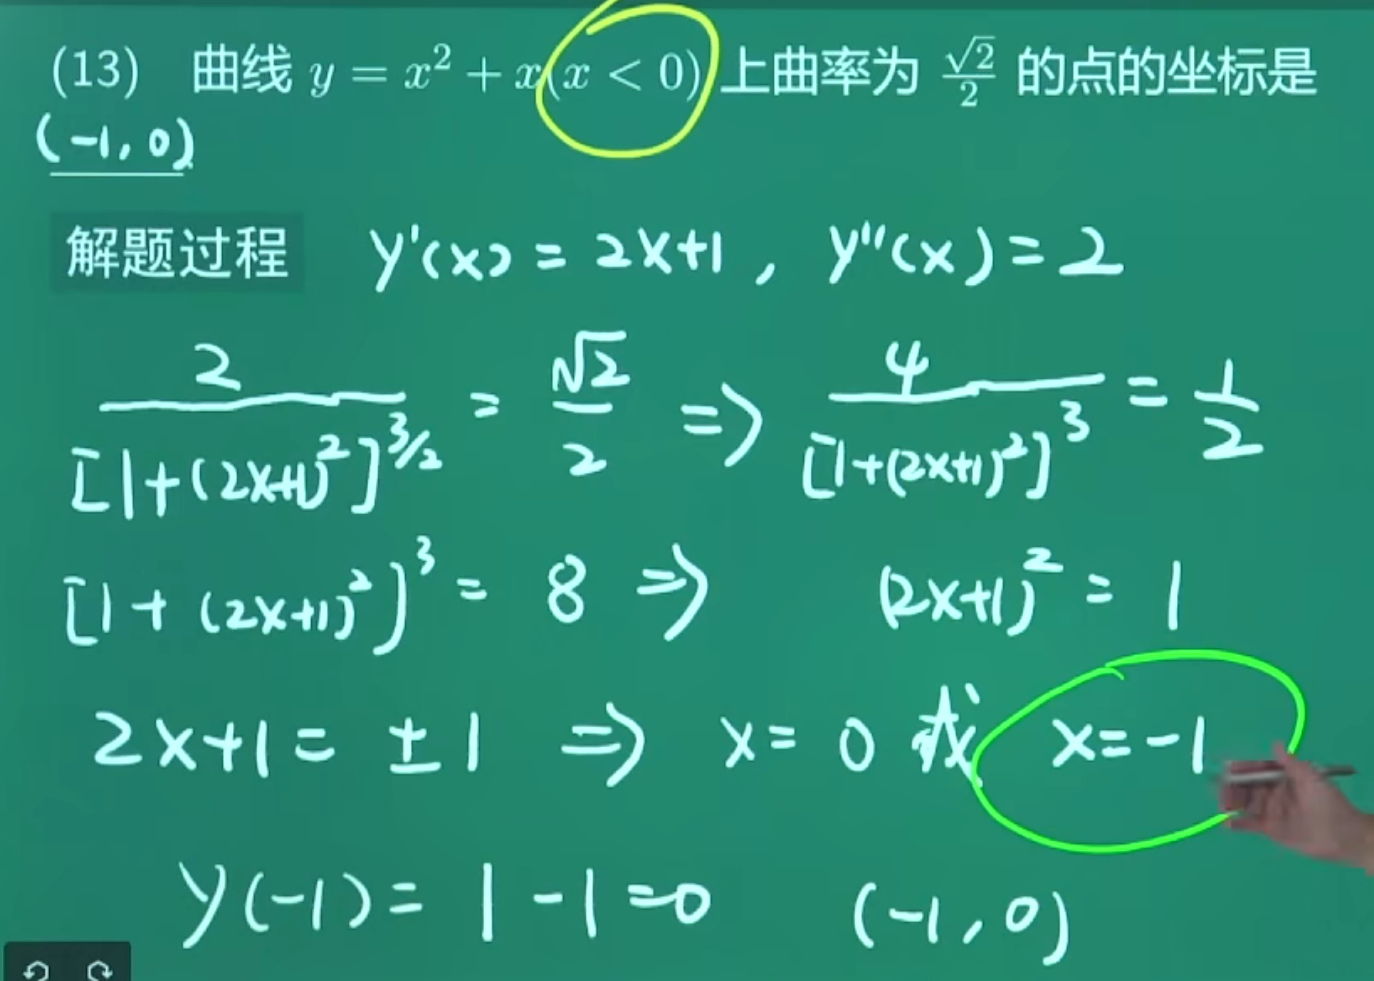 (13) 曲线 y = x² + x(x < 0) 上曲率为 √2/2 的点的坐标是
(-1, 0)
解题过程 y'(x) = 2x+1 , y''(x) = 2
2/[1+(2x+1)²]^(3/2) = √2/2 => 4/[1+(2x+1)²]³ = 1/2
[1+(2x+1)²]³ = 8 => (2x+1)² = 1
2x+1 = ±1 => x = 0 或 x = -1
y(-1) = 1-1=0 (-1, 0)